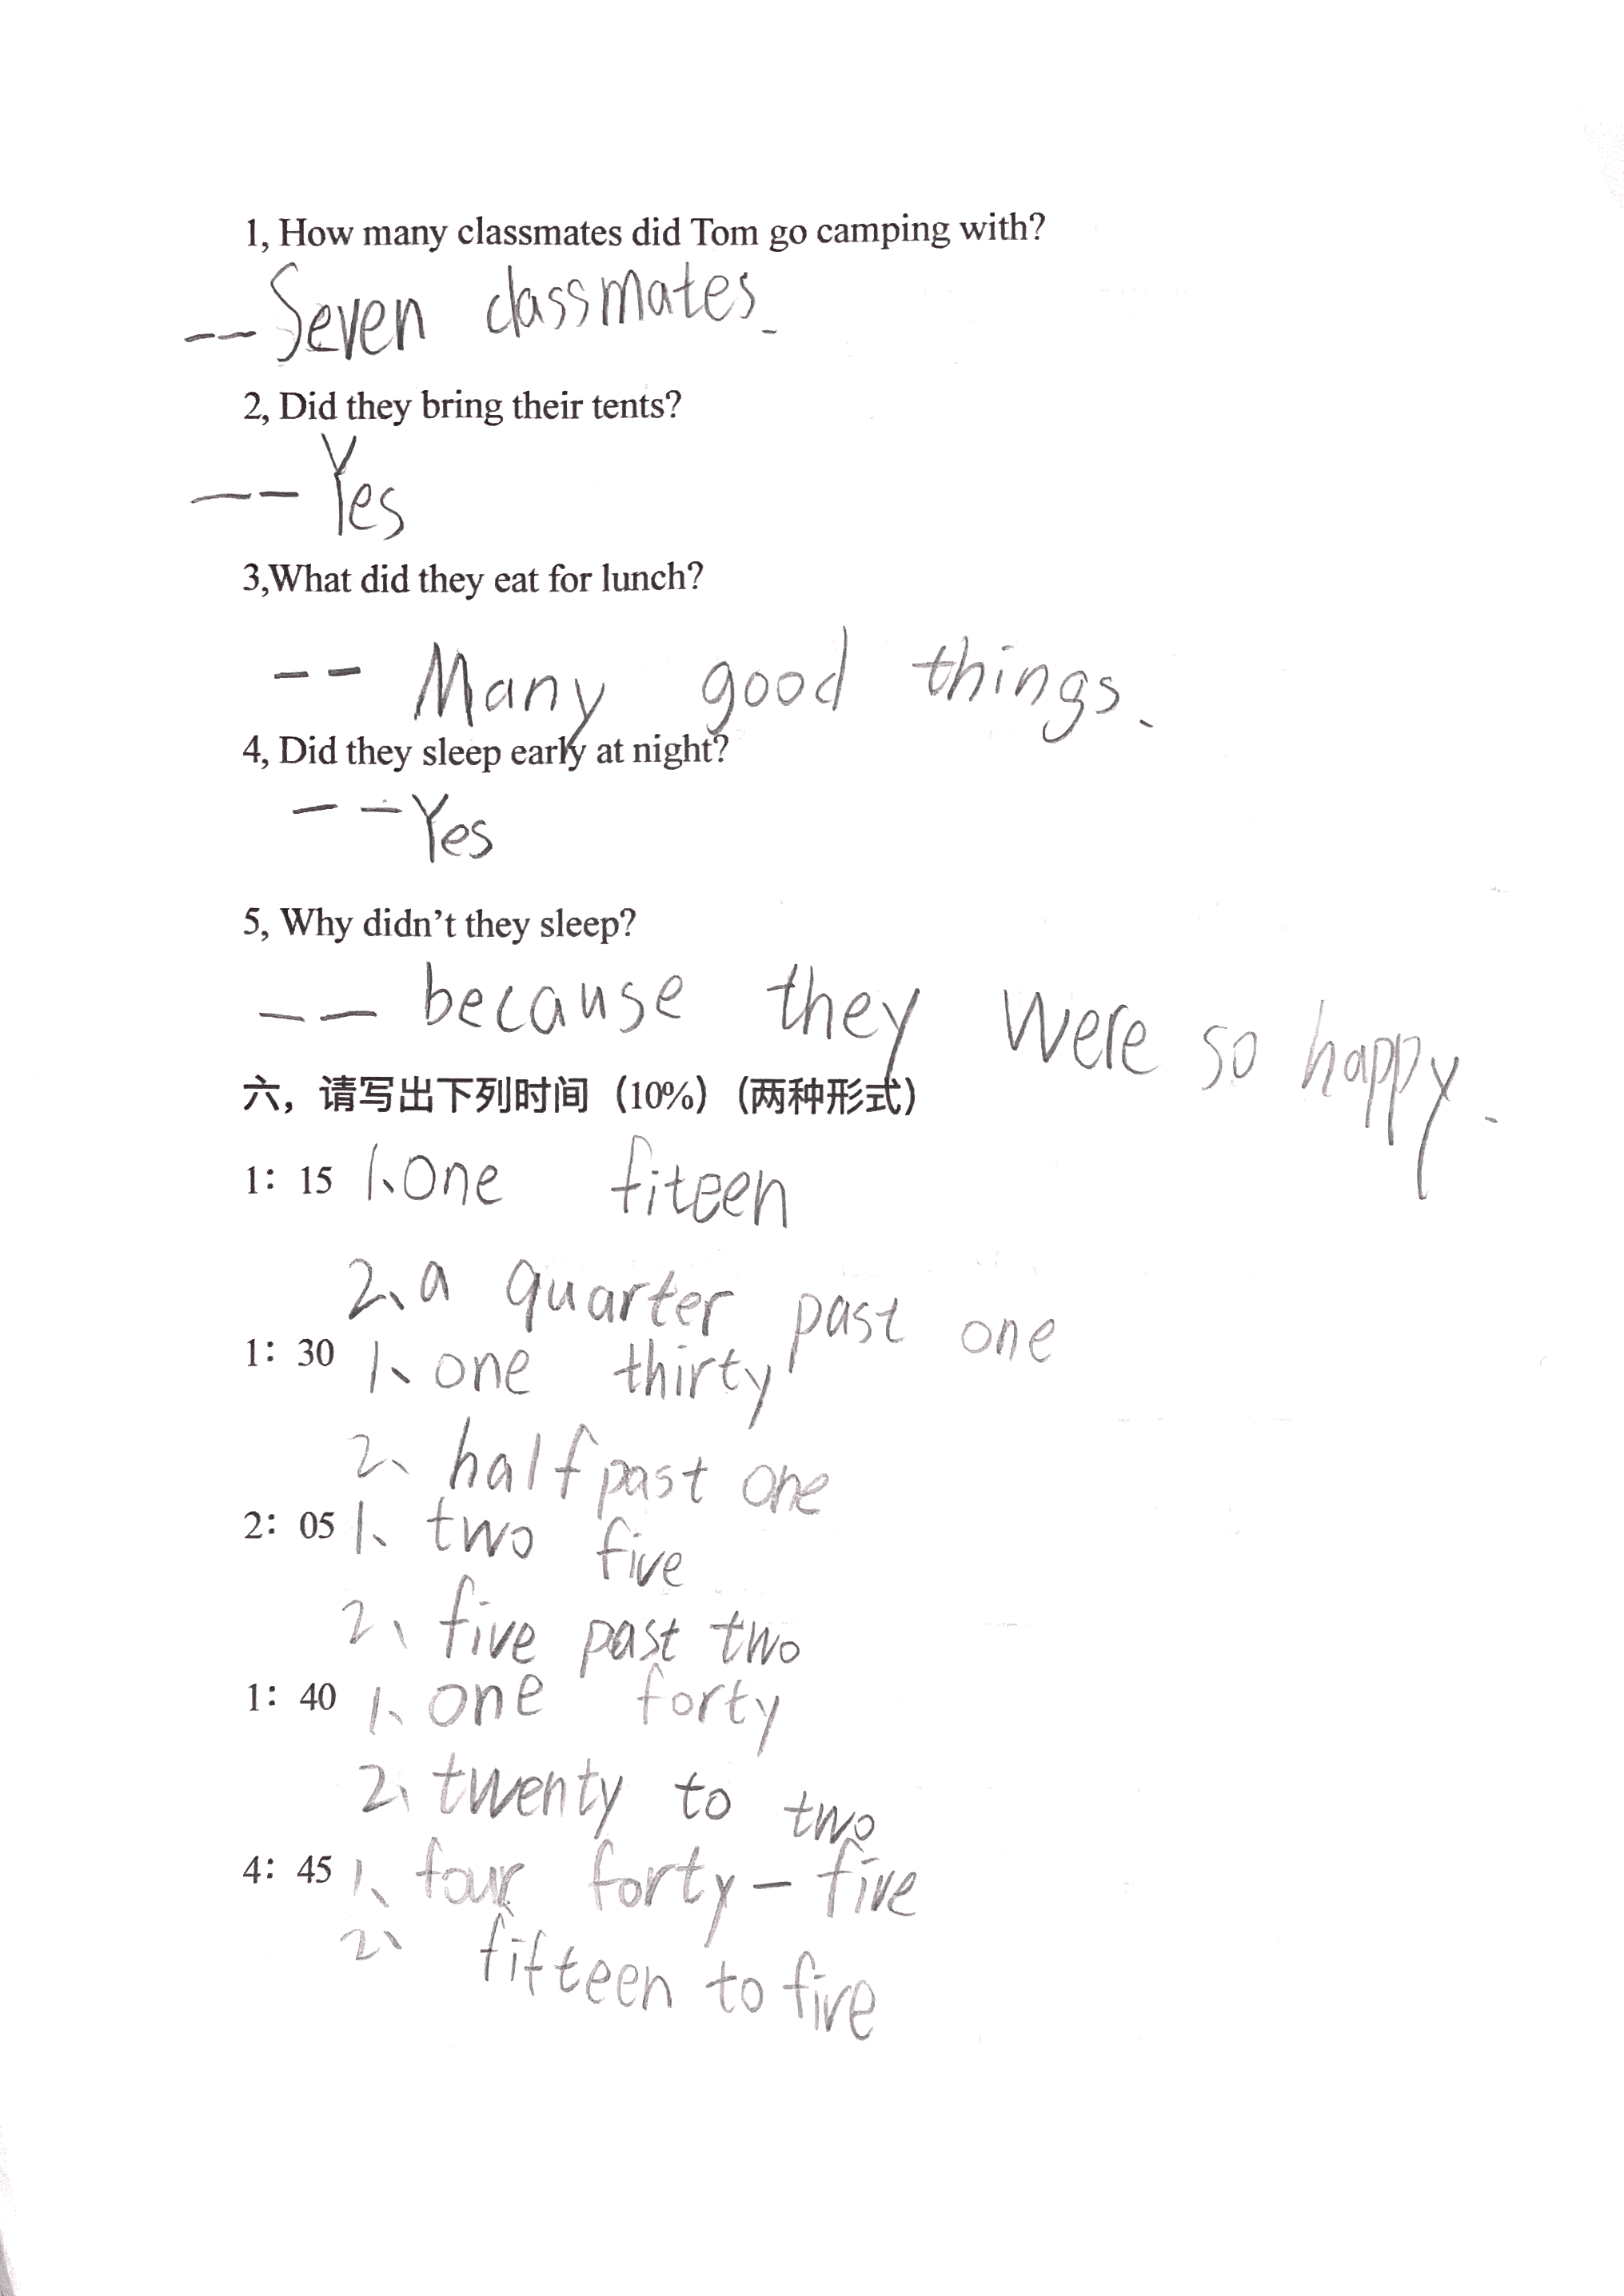 1, How many classmates did Tom go camping with?
-- Seven classmates.
2, Did they bring their tents?
-- Yes
3,What did they eat for lunch?
-- Many good things.
4, Did they sleep early at night?
-- Yes
5, Why didn't they sleep?
-- because they were so happy.
六，请写出下列时间（10%）(两种形式）
1：15 1、One fiteen
2、a quarter past one
1：30 1、one thirty
2、half past one
2：05 1、two five
2、five past two
1：40 1、one forty
2、twenty to two
4：45 1、four forty-five
2、fifteen to five